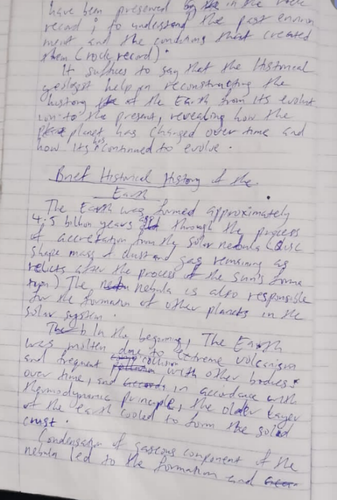 have been presented by the in the rock
record ; to understand the past environ
ment and the conditions that created
them (rock record).
It suffices to say that the Historical
geologist help in reconstructing the
history of the Earth from its evolut
ion to the present, revealing how the
planet has changed over time and
how its continued to evolve.
Brief Historical History of the
Earth
The Earth was formed approximately
4.5 billion years through the process
of accretation from the solar nebula (disc
shape mass of dust and gas remaining as
relicts after the process of the sun's forma
tion) The nebula is also responsible
for the formation of other planets in the
solar system.
In the begining, The Earth
was molten due to extreme volcanism
and frequent collision with other bodies.
over time, and in accordance with
thermodynamic principle, the older layer
of the earth cooled to form the solid
crust.
Condensation of gaseous component of the
nebula led to the formation and